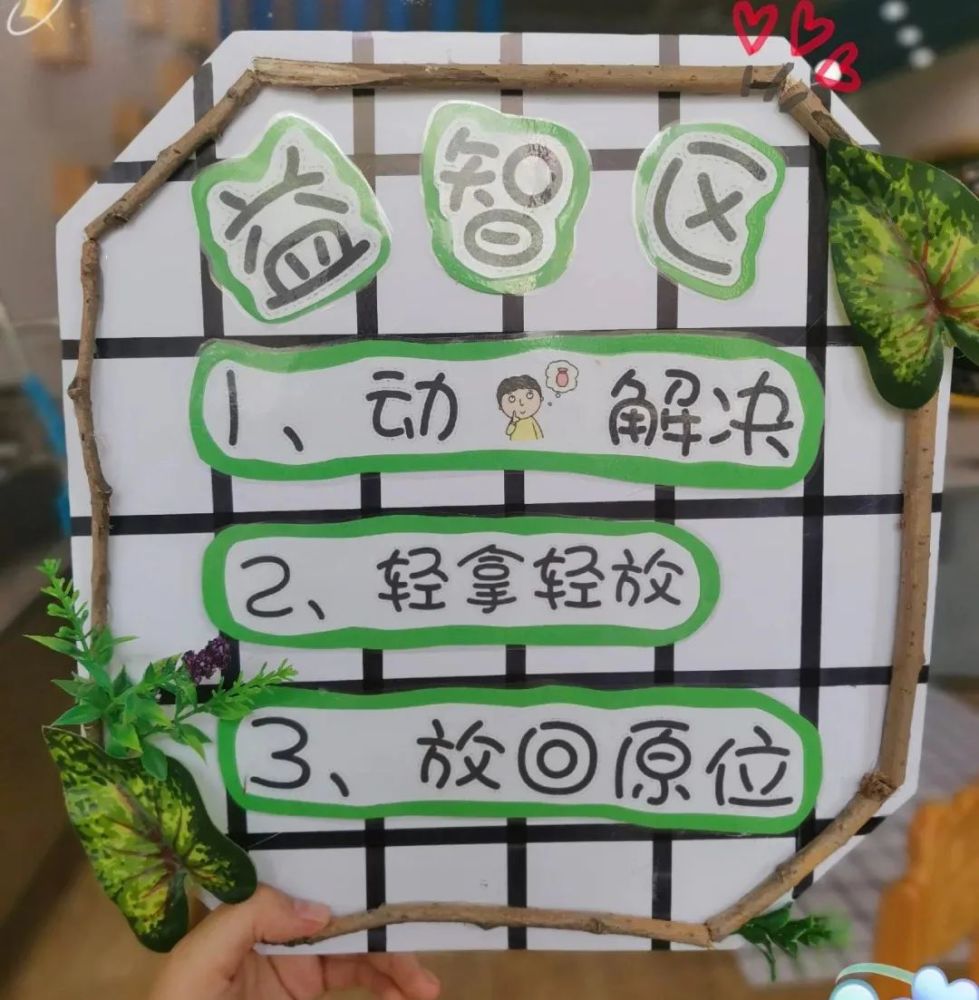 益智区
1、动 解决
2、轻拿轻放
3、放回原位